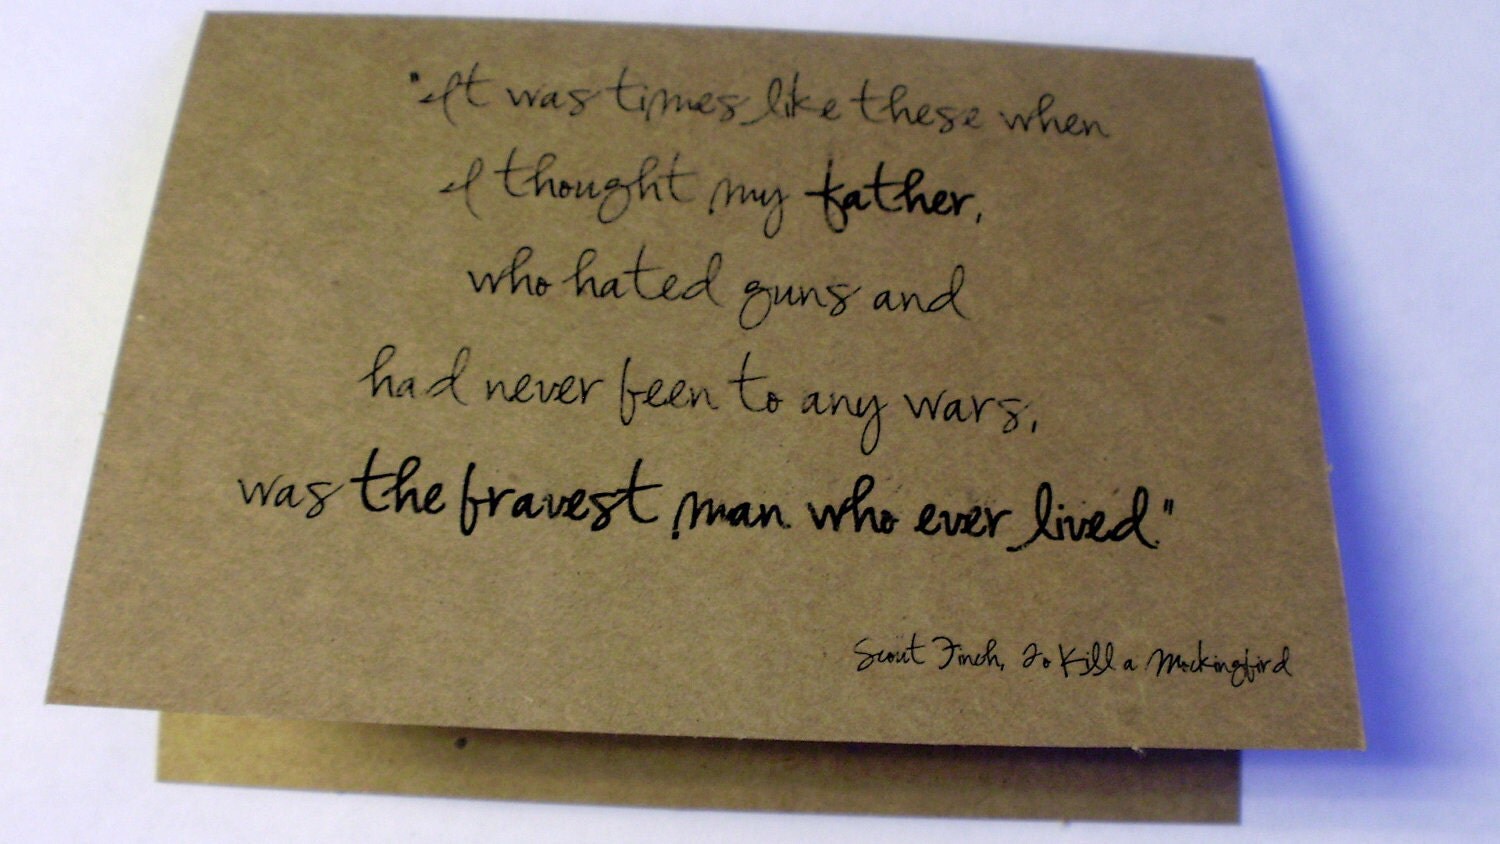 "It was times like these when
I thought my father,
who hated guns and
had never been to any wars,
was the bravest man who ever lived."
Scout Finch, To Kill a Mockingbird